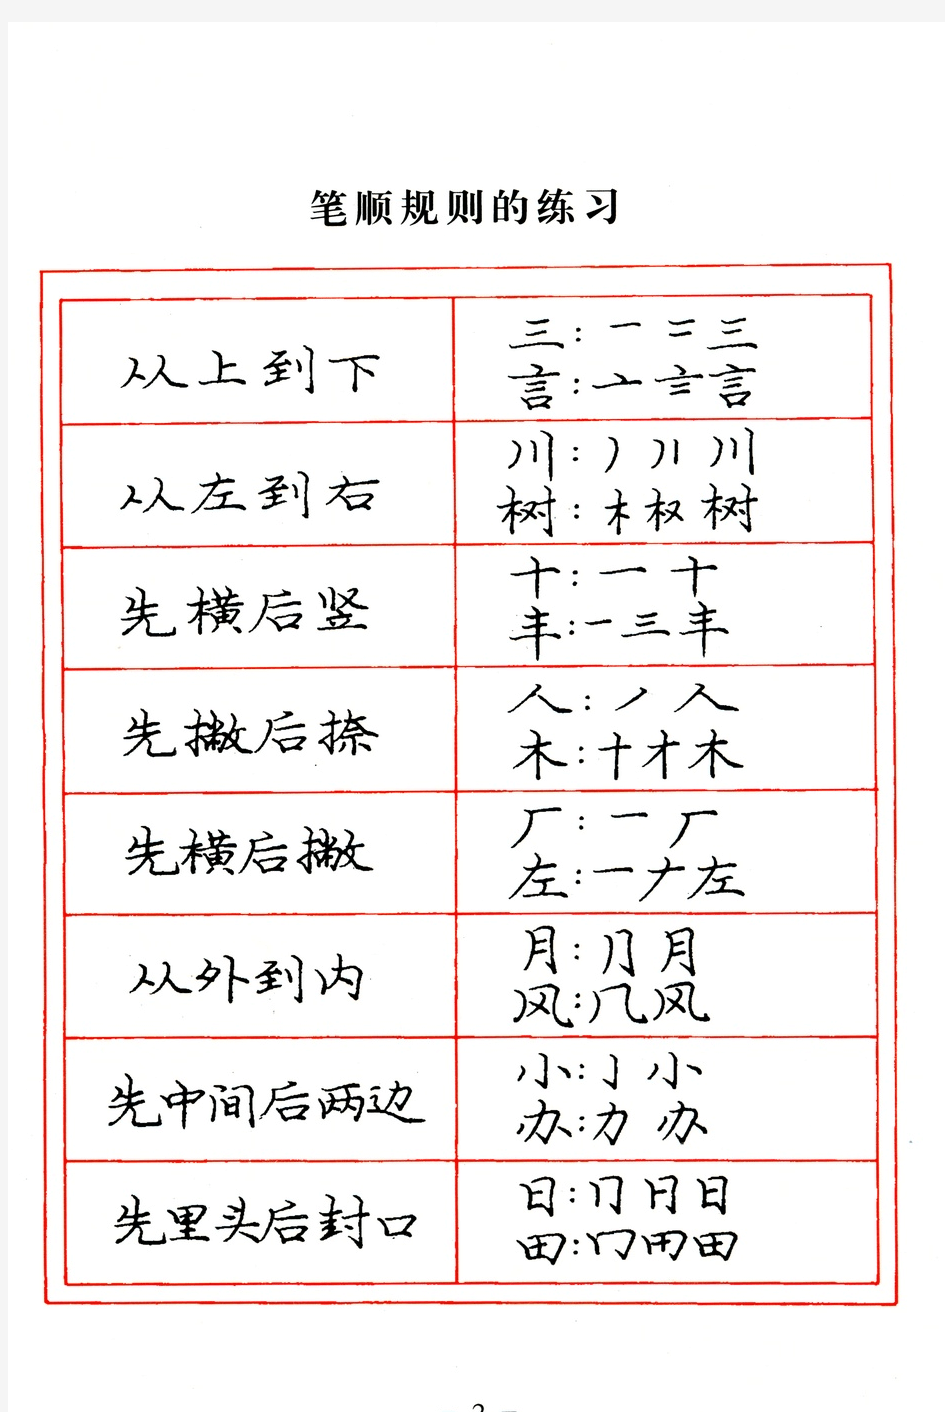 笔顺规则的练习
从上到下
三:一 二 三
言:亠 亖 言
从左到右
川:丿 丿丨 川
树:木 权 树
先横后竖
十:一 十
丰:一 三 丰
先撇后捺
人:丿 人
木:十 才 木
先横后撇
厂:一 厂
左:一 𠂇 左
从外到内
月:⺆ 月
风:几 风
先中间后两边
小:亅 小
办:力 办
先里头后封口
日:冂 日
田:冂 田